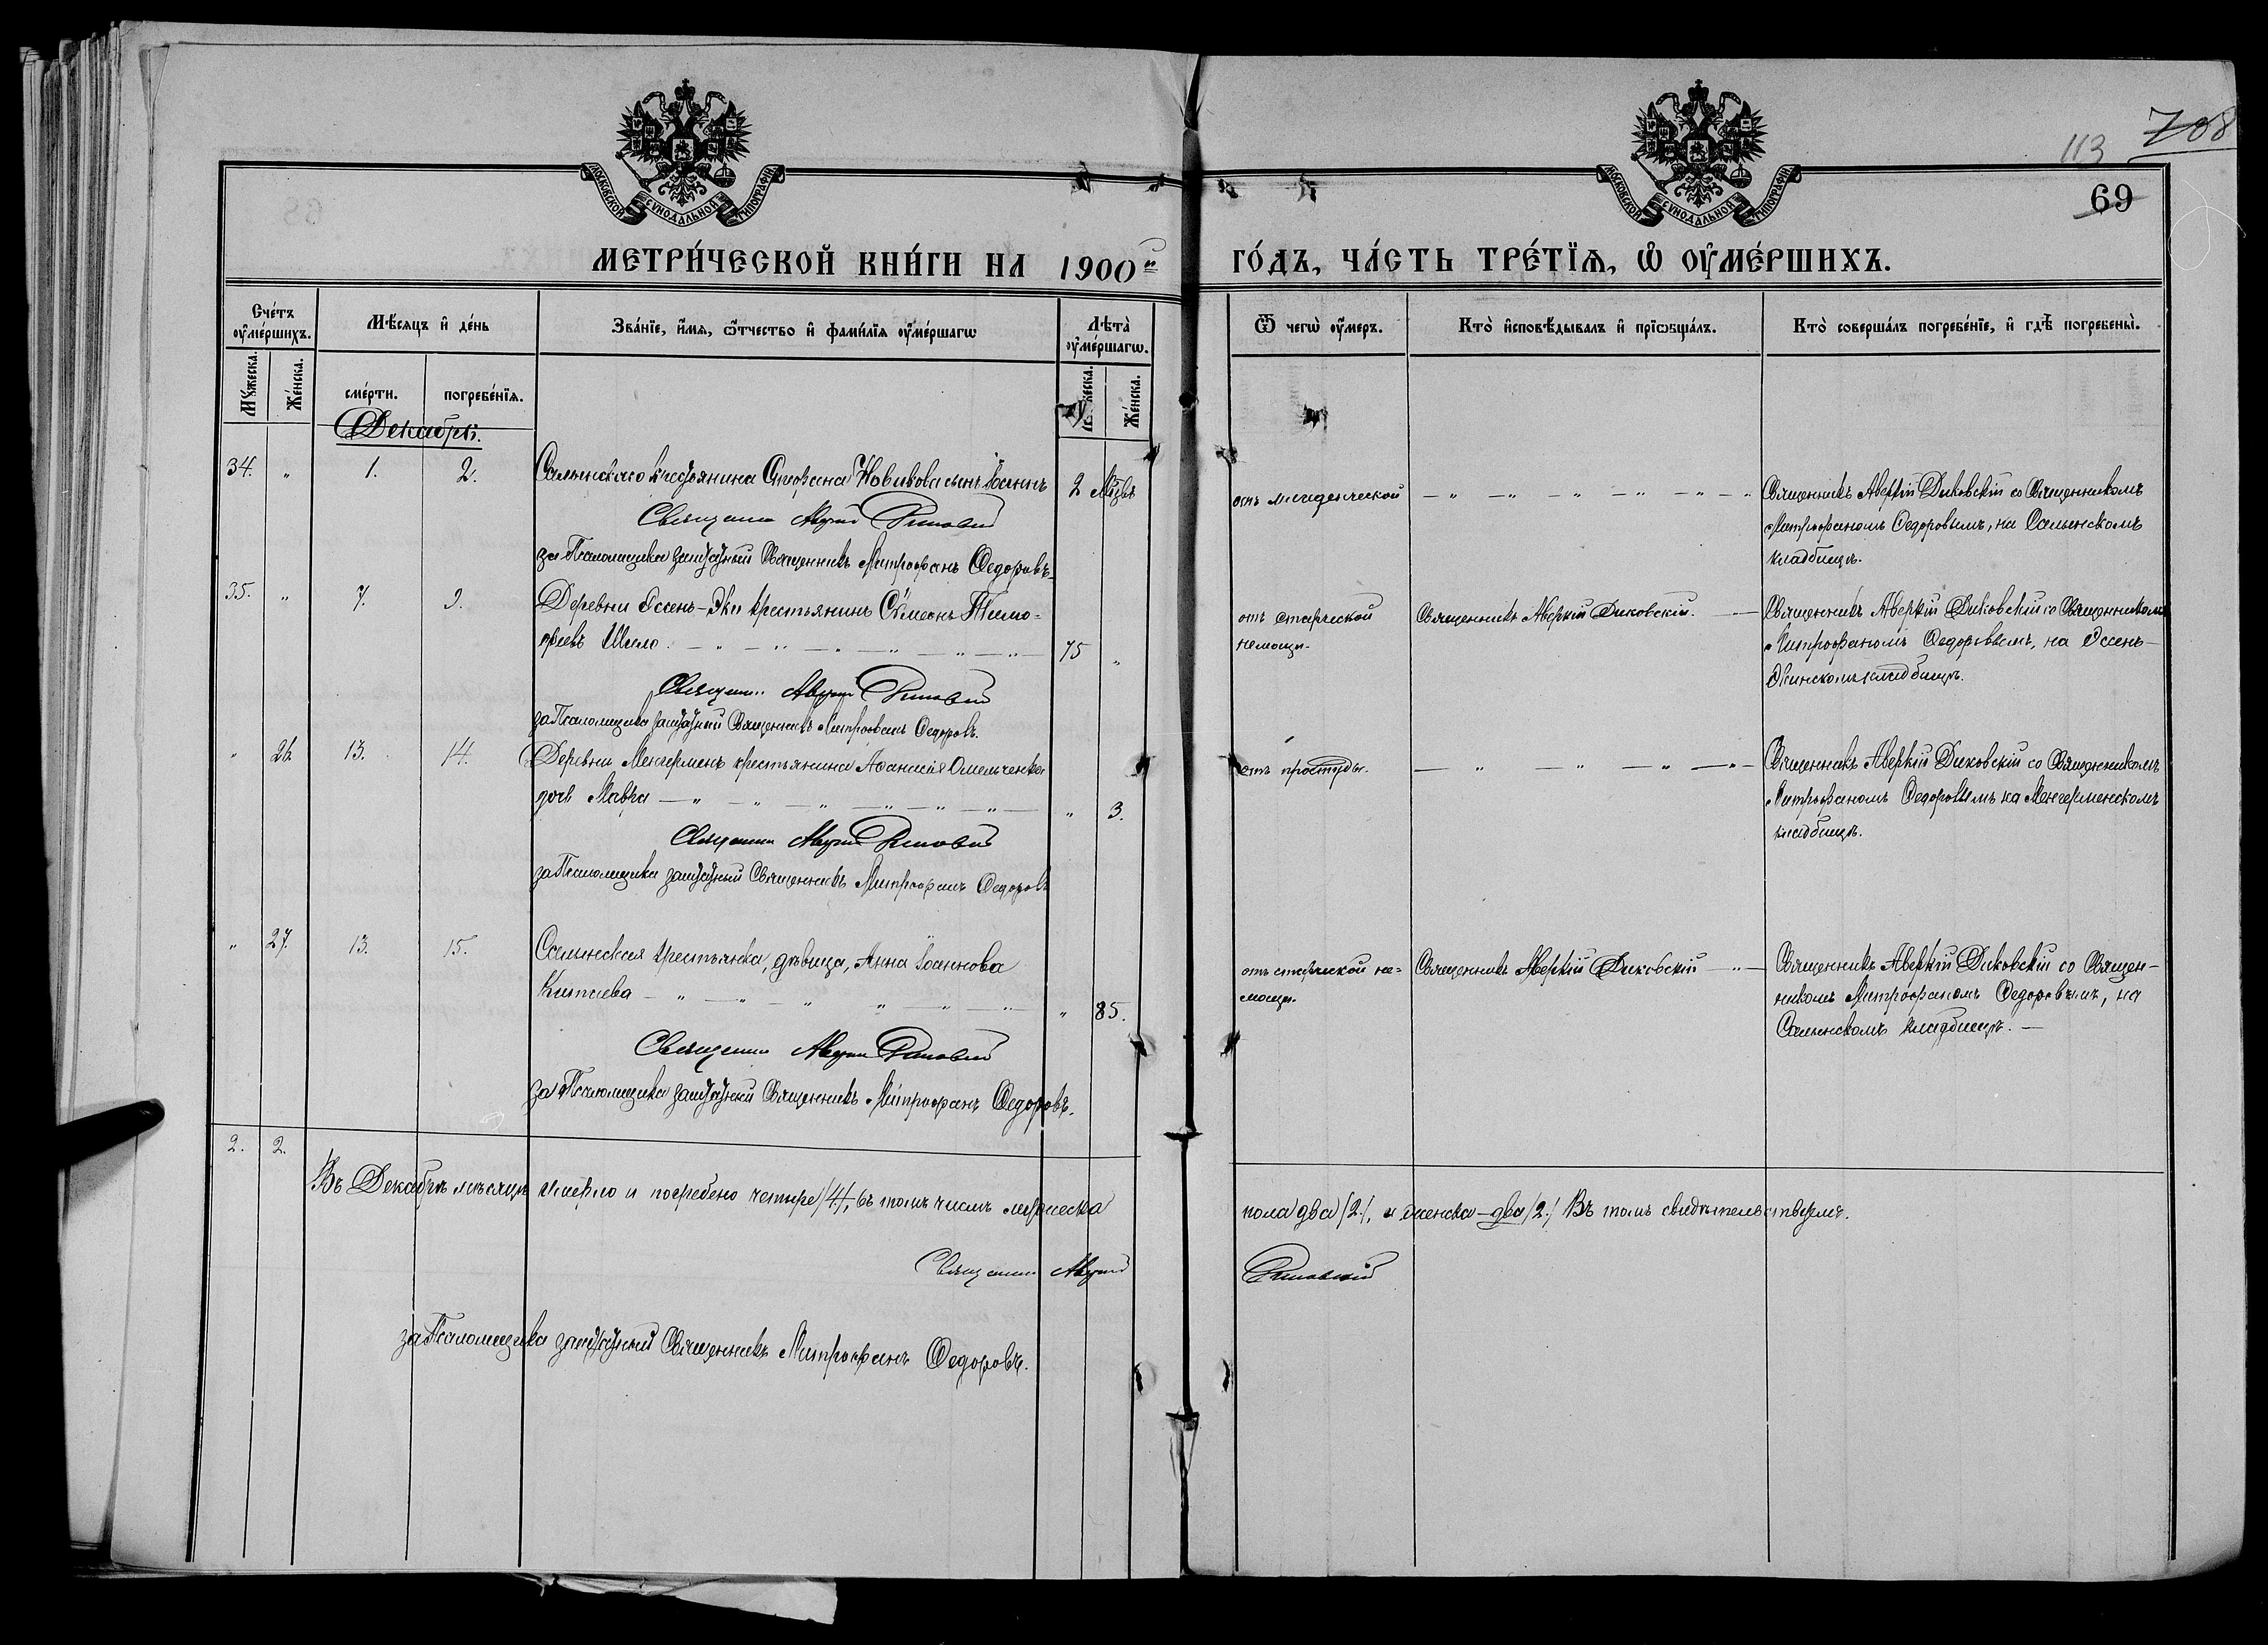 МОСКОВСКОЙ СѴНОДАЛЬНОЙ ТИПОГРАФІИ
МОСКОВСКОЙ СѴНОДАЛЬНОЙ ТИПОГРАФІИ
113
708
69
МЕТРИ́ЧЕСКОЙ КНИ́ГИ НА 1900й ГО́ДЪ, ЧА́СТЬ ТРЕ́ТЇѦ, Ѡ ОУМЕ́РШИХЪ.
Сче́тъ оумéршихъ.
Мѣ́сяцъ и де́нь
Зва́нїе, и́мя, ѻ́тчество и фами́лїя оумéршагѡ
Лѣта̀ оумéршагѡ.
Ѿ чегѡ̀ оу́меръ.
Кто̀ исповѣ́дывалъ и прїѡбща́лъ.
Кто̀ соверша́лъ погребе́нїе, и гдѣ̀ погребены̀.
Мꙋжеска.
Же́нска.
сме́рти.
погребе́нїя.
Же́нска.
Декабрь.
34. " 1. 2. Салынскаго крестьянина Стефана Новикова сынъ Іоаннъ 2 Мѣс.
Священникъ Аверкій Диковскій
за Псаломщика заштатный Священникъ Митрофанъ Ѳедоровъ.
отъ младенческой
Священникъ Аверкій Диковскій со Священникомъ
Митрофаномъ Ѳедоровымъ, на Салынскомъ
кладбищѣ.
35. " 7. 9. Деревни Эссенъ-Эки крестьянинъ Сѷмеонъ Тимо-
феевъ Шило. 75 "
Священникъ Аверкій Диковскій
за Псаломщика заштатный Священникъ Митрофанъ Ѳедоровъ.
отъ старческой
немощи.
Священникъ Аверкій Диковскій.
Священникъ Аверкій Диковскій со Священникомъ
Митрофаномъ Ѳедоровымъ, на Эссенъ-
Экинскомъ кладбищѣ.
" 26. 13. 14. Деревни Менгерменъ крестьянина Аѳанасія Омельченка
дочь Мавра " 3.
Священникъ Аверкій Диковскій
за Псаломщика заштатный Священникъ Митрофанъ Ѳедоровъ
отъ простуды.
Священникъ Аверкій Диковскій со Священникомъ
Митрофаномъ Ѳедоровымъ на Менгерменскомъ
кладбищѣ.
" 27. 13. 15. Салынская крестьянка, дѣвица, Анна Іоаннова
Китаева " 85.
Священникъ Аверкій Диковскій
за Псаломщика заштатный Священникъ Митрофанъ Ѳедоровъ.
отъ старческой не-
мощи.
Священникъ Аверкій Диковскій
Священникъ Аверкій Диковскій со Священ-
никомъ Митрофаномъ Ѳедоровымъ, на
Салынскомъ кладбищѣ.
2. 2.
Въ Декабрѣ мѣсяцѣ умерло и погребено четыре /4/, въ томъ числѣ мужеска пола два /2./, и женска – два /2./ Въ томъ свидѣтельствуемъ.
Священникъ Аверкій Диковскій
за Псаломщика заштатный Священникъ Митрофанъ Ѳедоровъ.